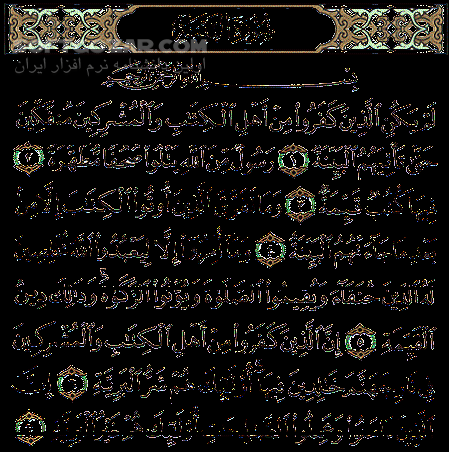 سورة البينة
SOFTGOZAR.COM
اولین دانشنامه نرم افزار ایران
بسم الله الرحمن الرحيم
لَمْ يَكُنِ الَّذِينَ كَفَرُوا مِنْ أَهْلِ الْكِتَابِ وَالْمُشْرِكِينَ مُنفَكِّينَ
حَتَّىٰ تَأْتِيَهُمُ الْبَيِّنَةُ ١ رَسُولٌ مِّنَ اللَّهِ يَتْلُوا صُحُفًا مُّطَهَّرَةً ٢
فِيهَا كُتُبٌ قَيِّمَةٌ ٣ وَمَا تَفَرَّقَ الَّذِينَ أُوتُوا الْكِتَابَ إِلَّا مِن
بَعْدِ مَا جَاءَتْهُمُ الْبَيِّنَةُ ٤ وَمَا أُمِرُوا إِلَّا لِيَعْبُدُوا اللَّهَ مُخْلِصِينَ
لَهُ الدِّينَ حُنَفَاءَ وَيُقِيمُوا الصَّلَاةَ وَيُؤْتُوا الزَّكَاةَ وَذَٰلِكَ دِينُ
الْقَيِّمَةِ ٥ إِنَّ الَّذِينَ كَفَرُوا مِنْ أَهْلِ الْكِتَابِ وَالْمُشْرِكِينَ
فِي نَارِ جَهَنَّمَ خَالِدِينَ فِيهَا أُولَٰئِكَ هُمْ شَرُّ الْبَرِيَّةِ ٦ إِنَّ
الَّذِينَ آمَنُوا وَعَمِلُوا الصَّالِحَاتِ أُولَٰئِكَ هُمْ خَيْرُ الْبَرِيَّةِ ٧